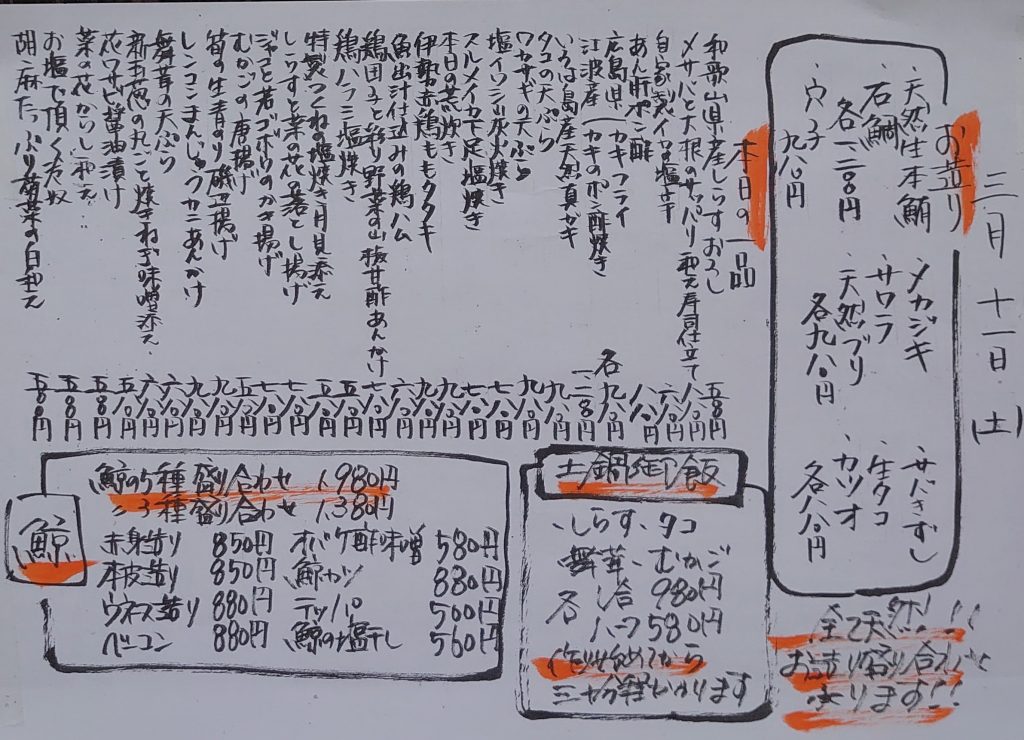 三月十一日(土)
お造り
・天然生本鮪
・石鯛
各一二〇〇円
・穴子
九八〇円
・メカジキ
・サワラ
・天然ブリ
各九八〇円
・サバきずし
・生タコ
・カツオ
各八八〇円
全て天然!!!
お造り盛り合わせ
あります!!
本日の一品
和歌山県産しらすおろし 五八〇円
メサバと大根のサッパリ和え寿司仕立て 八八〇円
自家製イカの塩辛 六八〇円
あん肝ポン酢 八八〇円
広島県(カキフライ
江波産(カキのポン酢焼き 各九八〇円
いろは島産天然真ガキ
タコの天ぷら
ワカサギの天ぷら
塩イワシ炭火焼き
スルメイカ下足塩焼き
本日の煮炊き
伊勢赤鶏ももタタキ
魚出汁仕込みの鶏ハム
鶏団子と彩り野菜の山椒甘酢あんかけ
鶏ハラミ塩焼き
特製つくねの塩焼き月見添え
しらすと菜の花の落とし揚げ
ジャコと若ゴボウのかき揚げ
むかごの唐揚げ
筍の生青のり磯辺揚げ
レンコンまんじゅうカニあんかけ
舞茸の天ぷら
新玉葱の丸ごと焼きねぎ味噌添え
花ワサビ醤油漬け
菜の花からし和え
お塩で頂く冷奴
胡麻たっぷり菊菜の白和え 五八〇円
土鍋御飯
・しらす・タコ
・舞茸・むかご
各一合 980円
ハーフ 580円
作り始めてから
三十分程かかります
鯨
鯨の5種盛り合わせ 1,980円
〃3種盛り合わせ 1,380円
赤身造り 850円
本皮造り 850円
ウネス造り 880円
ベーコン 880円
オバケ酢味噌 580円
鯨カツ 880円
テッパ 500円
鯨の塩干し 560円